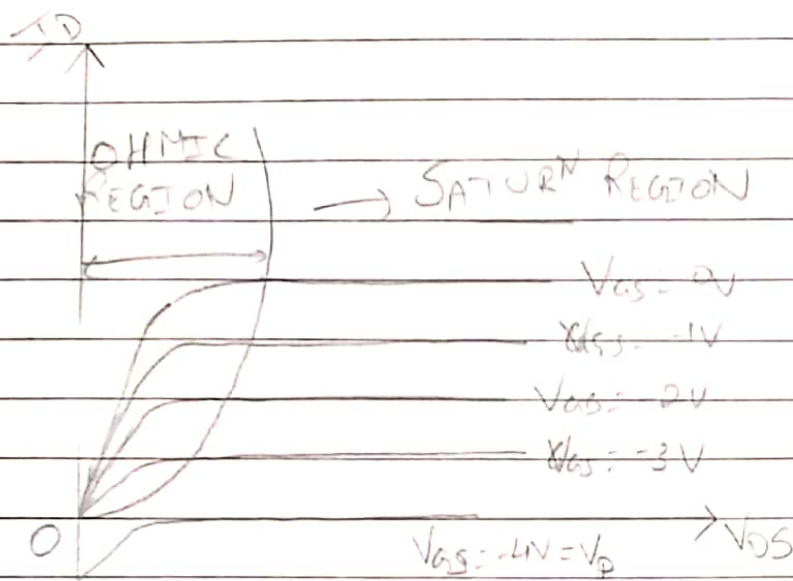 ID
OHMIC
REGION
→ SATURᴺ REGION
VGS = 0V
VGS = -1V
VGS = -2V
VGS = -3V
O
VGS = -4V = Vp
VDS